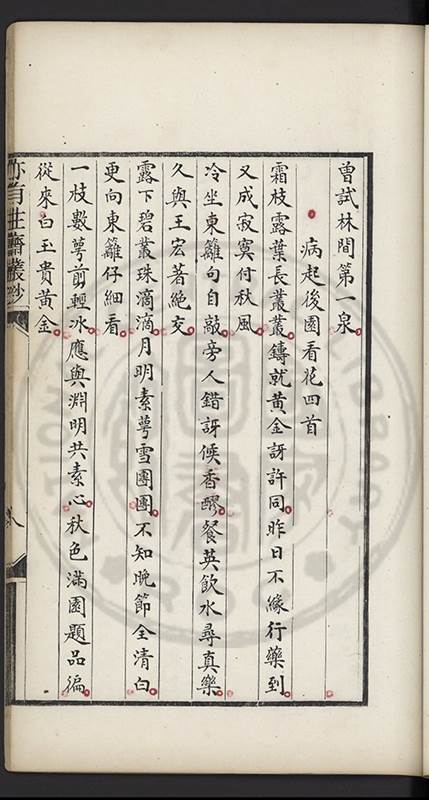 曾試林間第一泉
病起後園看花四首
霜枝露葉長叢叢鑄就黃金訝許同昨日不緣行藥到
又成寂寞付秋風
冷坐東籬句自敲旁人錯訝候香醪餐英飲水尋真樂
久與王宏著絶交
露下碧叢珠滴滴月明素萼雪團團不知晚節全清白
更向東籬仔細看
一枝數萼剪輕冰應與淵明共素心秋色滿園題品徧
從來白玉貴黃金
亦有生齋叢鈔